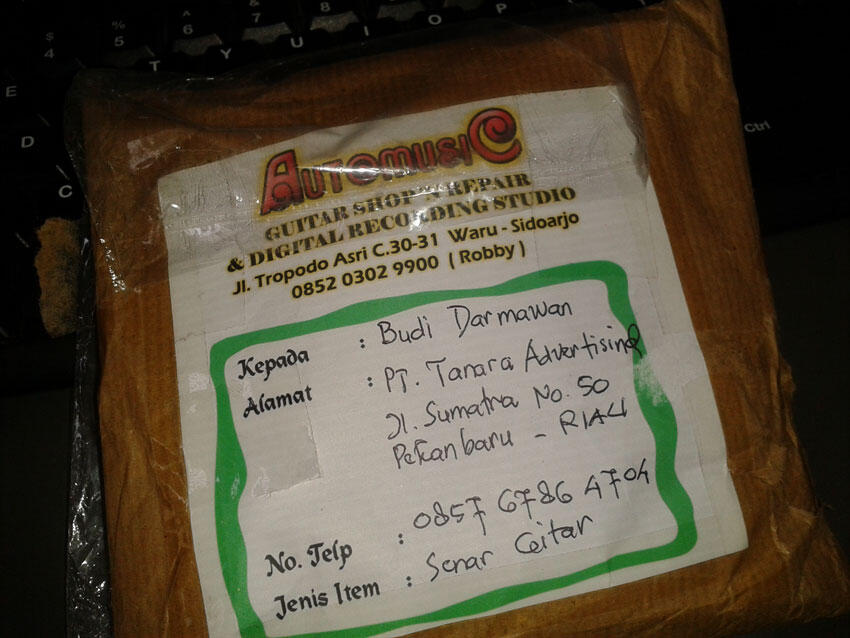 $ 4
% 5
^ 6
& 7
* 8
E T Y U I O P
D
C
Ctrl
AUTOMUSIC
GUITAR SHOP 'N REPAIR
& DIGITAL RECORDING STUDIO
Jl. Tropodo Asri C.30-31 Waru - Sidoarjo
0852 0302 9900 ( Robby )
Kepada : Budi Darmawan
Alamat : PT. Tanara Advertising
Jl. Sumatra No. 50
Pekanbaru - RIAU
No. Telp : 0857 6786 4704
Jenis Item : Senar Gitar